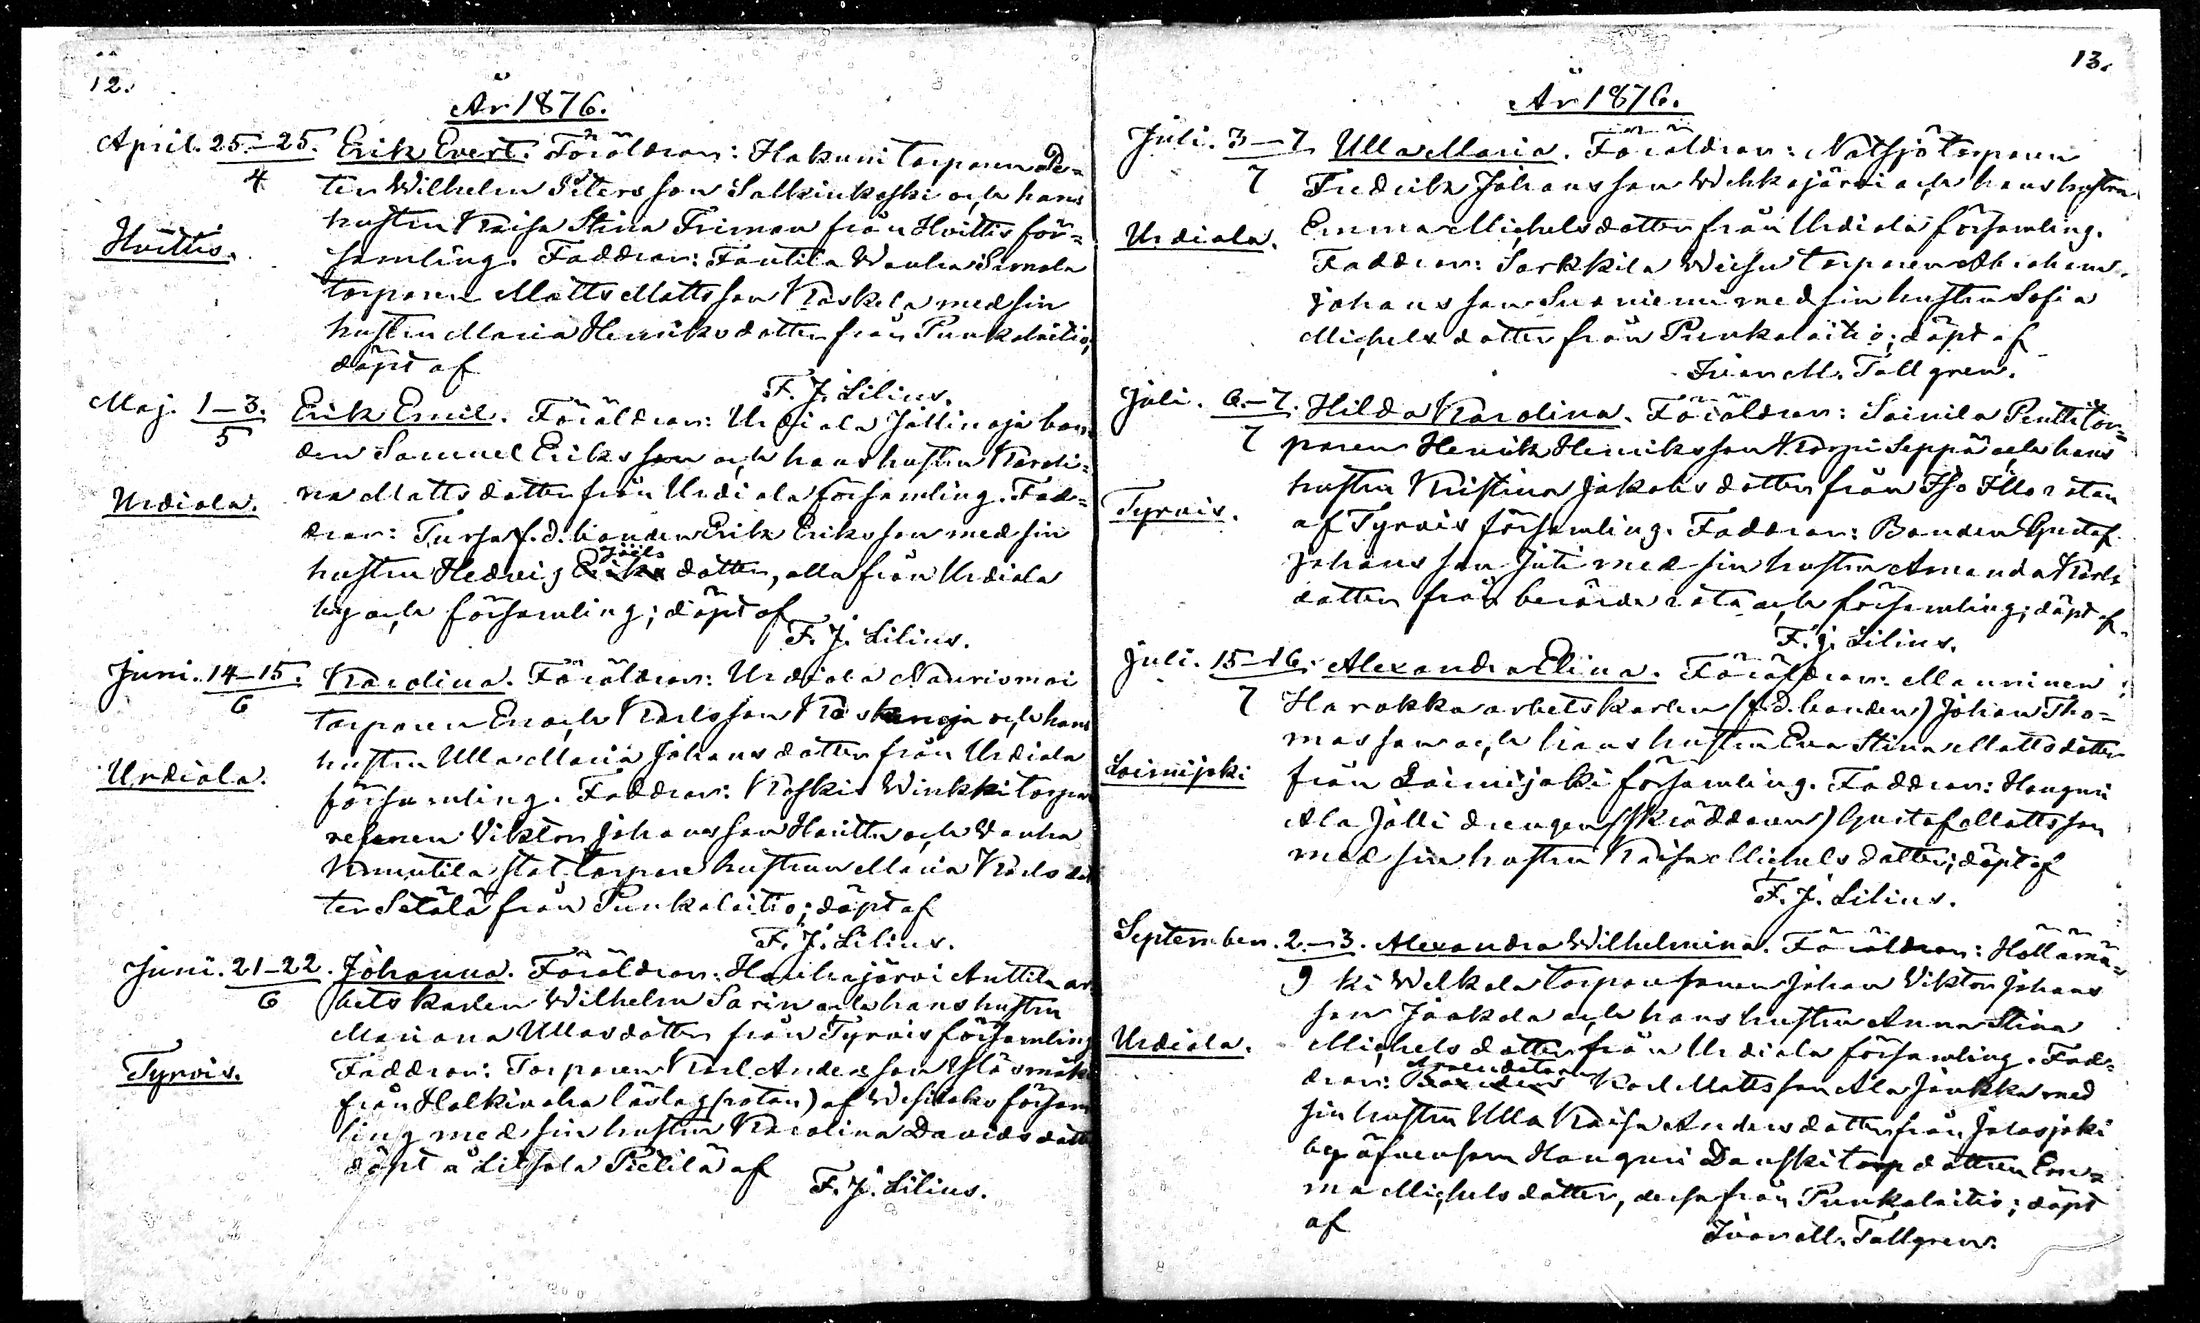 12.
År 1876.
April. 25.–25. Erik Evert. Föräldrar: Hakuni torparen Pe=
4 ter Wilhelm Petersson Salkinkoski och hans
hustru Kaisa Stina Friman från Hvittis för=
Hvittis.
samling. Faddrar: Fantila Wanha Simola
torparen Matts Mattsson Koskela med sin
hustru Maria Henriksdotter från Punkalaitio;
döpt af
F. J. Lilius.
Maj. 1–3. Erik Emil. Föräldrar: Urdiala Jallinoja bon=
5 den Samuel Eriksson och hans hustru Karoli=
na Mattsdotter från Urdiala församling. Fad=
Urdiala.
drar: Tursa f. d. bonden Erik Eriksson med sin
Joels
hustru Hedvig Eriks dotter, alla från Urdiala
by och församling; döpt af
F. J. Lilius.
Juni. 14–15. Karolina. Föräldrar: Urdiala Naurismai
6 torparen Enoch Karlsson Koskenoja och hans
hustru Ulla Maria Johansdotter från Urdiala
Urdiala.
församling. Faddrar: Koskis Winkki torpa
resonen Viktor Johansson Haritu och Wanha
Knuutila stat torpare hustrun Maria Karlsdot
ter Setälä från Punkalaitio; döpt af
F. J. Lilius.
Juni. 21–22. Johanna. Föräldrar: Hanhijärvi Anttila ar
6 betskarlen Wilhelm Sarin och hans hustru
Mariana Ullasdotter från Tyrvis församling
Tyrvis.
Faddrar: Torparen Karl Andersson Ylösmäki
från Halkivaha läslag (rotan) af Wesilaks försam
ling med sin hustru Karolina Davidsdotter
döpt å Liitsola Pietilä af
F. J. Lilius.
13.
År 1876.
Juli. 3–7 Ulla Maria. Föräldrar: Natsjö torparen
7 Fredrik Johansson Wehkajärvi och hans hustru
Urdiala.
Emma Michelsdotter från Urdiala församling.
Faddrar: Sarkkila Wiisu torparen Abraham
Johansson Suoniemi med sin hustru Sofia
Michelsdotter från Punkalaitio; döpt af
Ivar M. Tallgren.
Juli. 6.–7. Hilda Karolina. Föräldrar: Soinila Penttitor=
7 paren Henrik Henriksson Korpi Seppä och hans
hustru Kristina Jakobsdotter från Iso Illo rotan
Tyrvis.
af Tyrvis församling. Faddrar: Bonden Gustaf
Johansson Juti med sin hustru Amanda Karls
dotter från berörde rota och församling; döpt af
F. J. Lilius.
Juli. 15–16. Alexandra Elina. Föräldrar: Manninen
7 Harakka arbetskarlen (f. d. bonden) Johan Tho=
masson och hans hustru Eva Stina Mattsdotter
Loimijoki
från Loimijoki församling. Faddrar: Haunguri
Ala Jälli drengen (skräddaren) Gustaf Mattsson
med sin hustru Kaisa Michelsdotter; döpt af
F. J. Lilius.
September. 2.–3. Alexandra Wilhelmina. Föräldrar: Hollamä=
9 ki Welkala torparsonen Johan Viktor Johans
son Jaakola och hans hustru Anna Stina
Urdiala.
Michelsdotter från Urdiala församling. Fad=
Arrendatorn
drar: Bonden Karl Mattsson Ala Jaakka med
sin hustru Ulla Kaisa Andersdotter från Jalasjoki
by äfvensom Haunguri Danski torpdottren Em=
ma Michelsdotter, dessa från Punkalaitio; döpt
af
Ivar M. Tallgren.